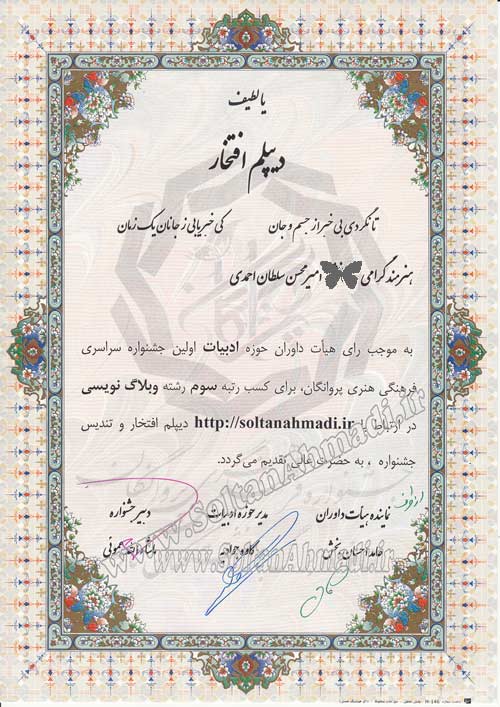 یا لطیف
دیپلم افتخار
تا نگردی بی خبر از جسم و جان کی خبر یابی ز جانان یک زمان
هنرمند گرامی امیرمحسن سلطان احمدی
به موجب رای هیأت داوران حوزه ادبیات اولین جشنواره سراسری
فرهنگی هنری پروانگان، برای کسب رتبه سوم رشته وبلاگ نویسی
در ارتباط با http://soltanahmadi.ir دیپلم افتخار و تندیس
جشنواره ، به حضرت عالی تقدیم می‌گردد.
از طرف
نماینده هیأت داوران مدیر حوزه ادبیات دبیر جشنواره
حامد احسان بخش کاوه جوادیه
www.SoltanAhmadi.ir
www.SoltanAhmadi.ir